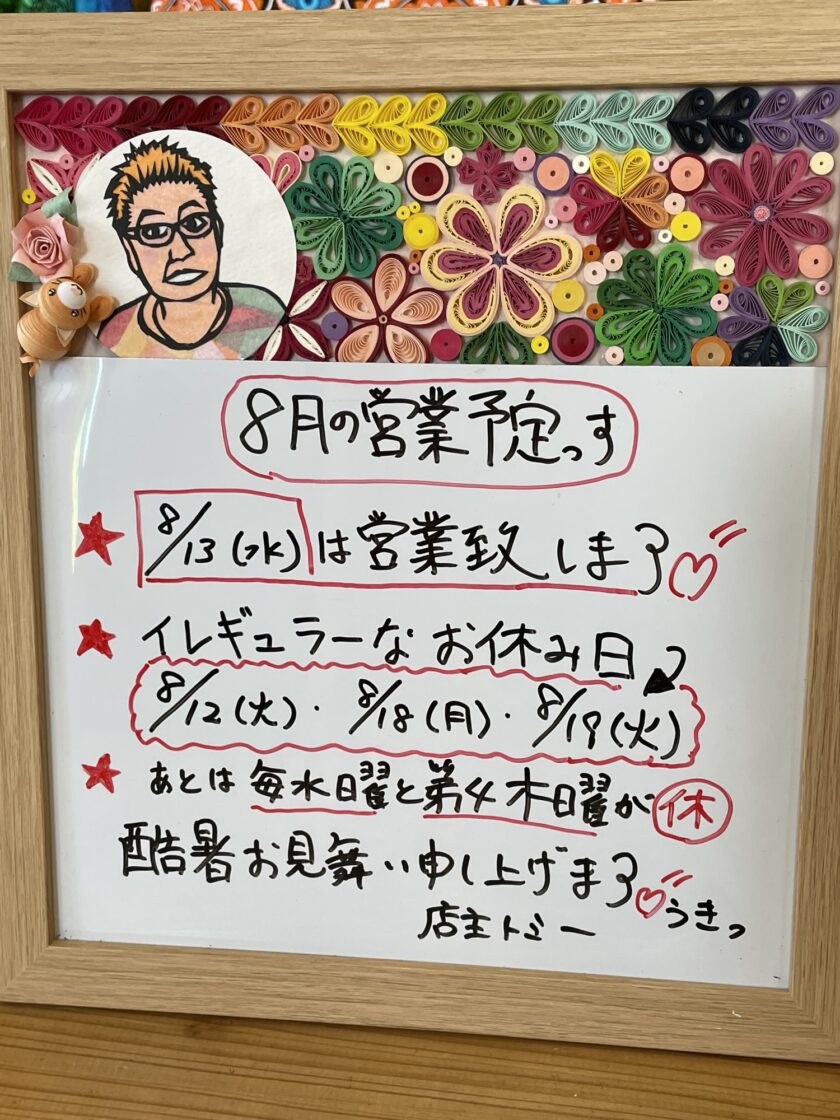 8月の営業予定っす
8/13(水)は営業致しまろ
イレギュラーなお休み日
8/12(火)・8/18(月)・8/19(火)
あとは毎水曜と第4木曜が休
酷暑お見舞い申し上げまろ
うきっ
店主トミー